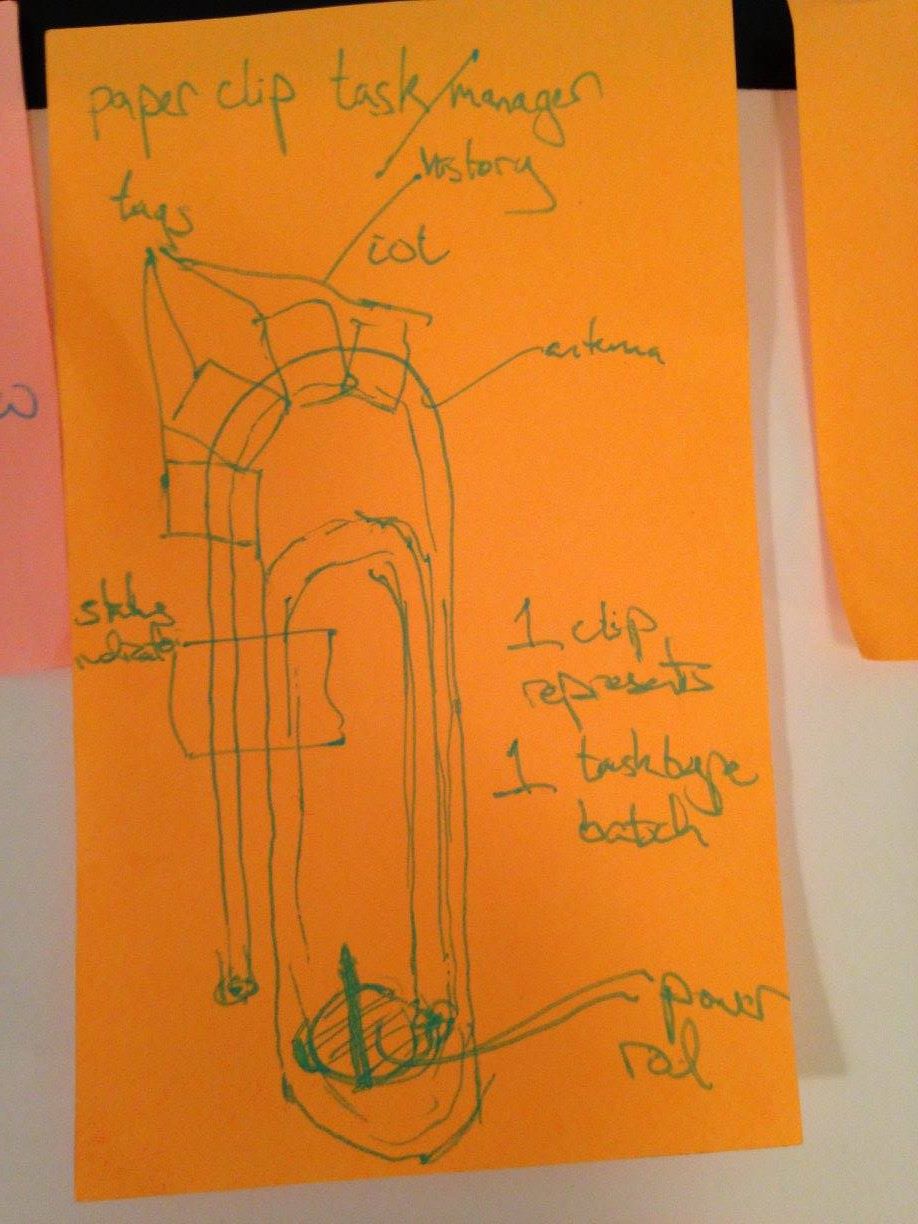 paper clip task/manager
history
tags
iot
antenna
status
indicator
1 clip
represents
1 task type
batch
power
rail